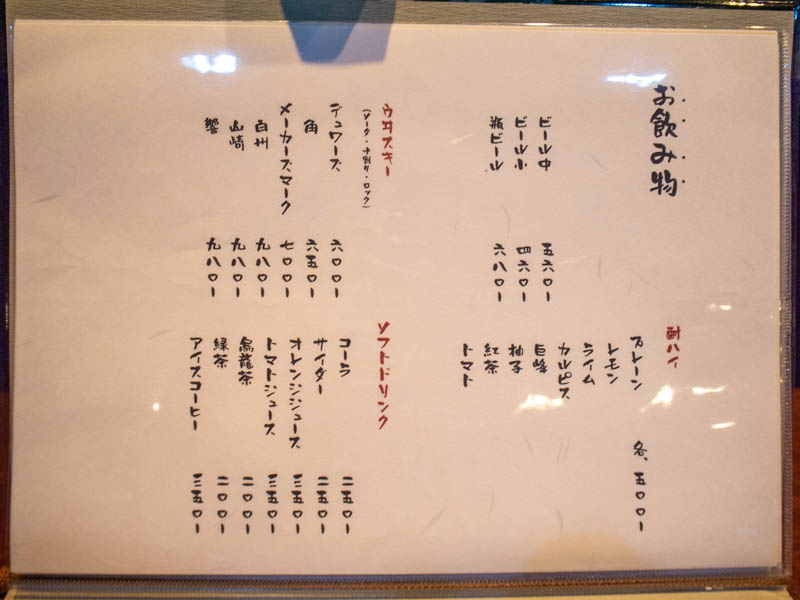 お飲み物
ビール中 五六〇ー
ビール小 四六〇ー
瓶ビール 六八〇ー
酎ハイ
プレーン 各、五〇〇ー
レモン
ライム
カルピス
巨峰
柚子
紅茶
トマト
ウヰスキー
(ソーダ・水割り・ロック)
デュワーズ 六〇〇ー
角 六五〇ー
メーカーズマーク 七〇〇ー
白州 九八〇ー
山崎 九八〇ー
響 九八〇ー
ソフトドリンク
コーラ 二五〇ー
サイダー 二五〇ー
オレンジジュース 三五〇ー
トマトジュース 三五〇ー
烏龍茶 二〇〇ー
緑茶 二〇〇ー
アイスコーヒー 三五〇ー